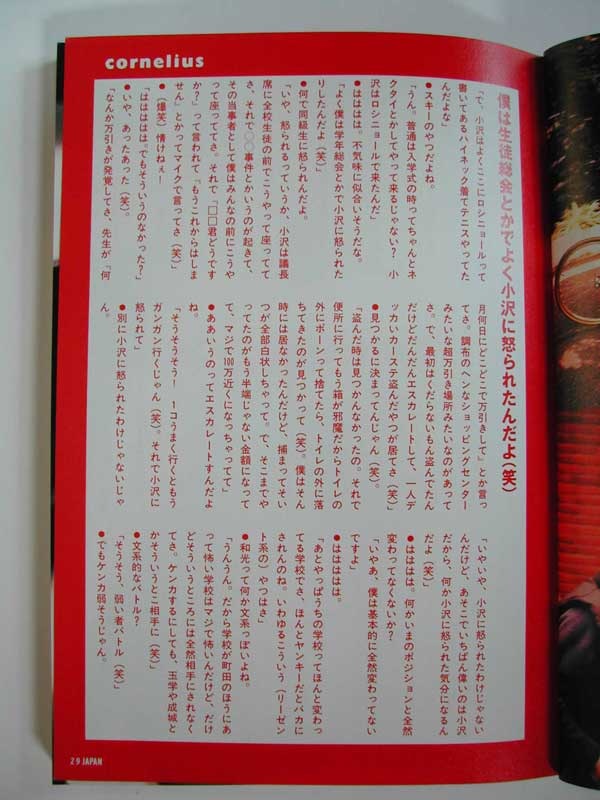 cornelius
僕は生徒総会とかでよく小沢に怒られたんだよ(笑)
「で、小沢はよくここにロシニョールって
書いてあるハイネック着てテニスやってた
んだよな」
●スキーのやつだよね。
「うん。普通は入学式の時ってちゃんとネ
クタイとかしてやって来るじゃない? 小
沢はロシニョールで来たんだ」
●はははは。不気味に似合いそうだな。
「よく僕は学年総会とかで小沢に怒られた
りしたんだよ(笑)」
●何で同級生に怒られんだよ。
「いや、怒られるっていうか、小沢は議長
席に全校生徒の前でこうやって座ってて
さ、それで○○事件とかいうのが起きて、
その当事者として僕はみんなの前にこうや
って座っててさ。それで「□□君どうです
か?」って言われて、「もうこれからはしま
せん」とかってマイクで言ってさ(笑)」
●(爆笑)情けねぇ!
「はははは。でもそういうのなかった?」
●いや、あったあった(笑)。
「なんか万引きが発覚してさ、先生が「何
月何日にどこどこで万引きして」とか言っ
てさ。調布のヘンなショッピングセンター
みたいな超万引き場所みたいなのがあって
さ。で、最初はくだらないもん盗んでたん
だけどだんだんエスカレートして、一人デ
ッカいカーステ盗んだやつが居てさ(笑)」
●見つかるに決まってんじゃん(笑)。
「盗んだ時は見つかんなかったの。それで
便所に行ってもう箱が邪魔だからトイレの
外にポーンって捨てたら、トイレの外に落
ちてきたのが見つかって(笑)。僕はそん
時には居なかったんだけど、捕まってそい
つが全部白状しちゃって。で、そこまでや
ってたのがもう半端じゃない金額になって
て、マジで100万近くになっちゃってて」
●ああいうのってエスカレートすんだよ
ね。
「そうそうそう! 1コうまく行くともう
ガンガン行くじゃん(笑)。それで小沢に
怒られて」
●別に小沢に怒られたわけじゃないじゃ
ん。
「いやいや、小沢に怒られたわけじゃない
んだけど、あそこでいちばん偉いのは小沢
だから、何か小沢に怒られた気分になるん
だよ(笑)」
●はははは。何かいまのポジションと全然
変わってなくないか?
「いやあ、僕は基本的に全然変わってない
ですよ」
●ははははは。
「あとやっぱうちの学校ってほんと変わっ
てる学校でさ、ほんとヤンキーだとバカに
されんのね。いわゆるこういう(リーゼン
ト系の)やつはさ」
●和光って何か文系っぽいよね。
「うんうん。だから学校が町田のほうにあ
って怖い学校はマジで怖いんだけど、だけ
どそういうところには全然相手にされなく
てさ。ケンカするにしても、玉学や成城と
かそういうとこ相手に(笑)」
●文系的なバトル?
「そうそう、弱い者バトル(笑)」
●でもケンカ弱そうじゃん。
29 JAPAN